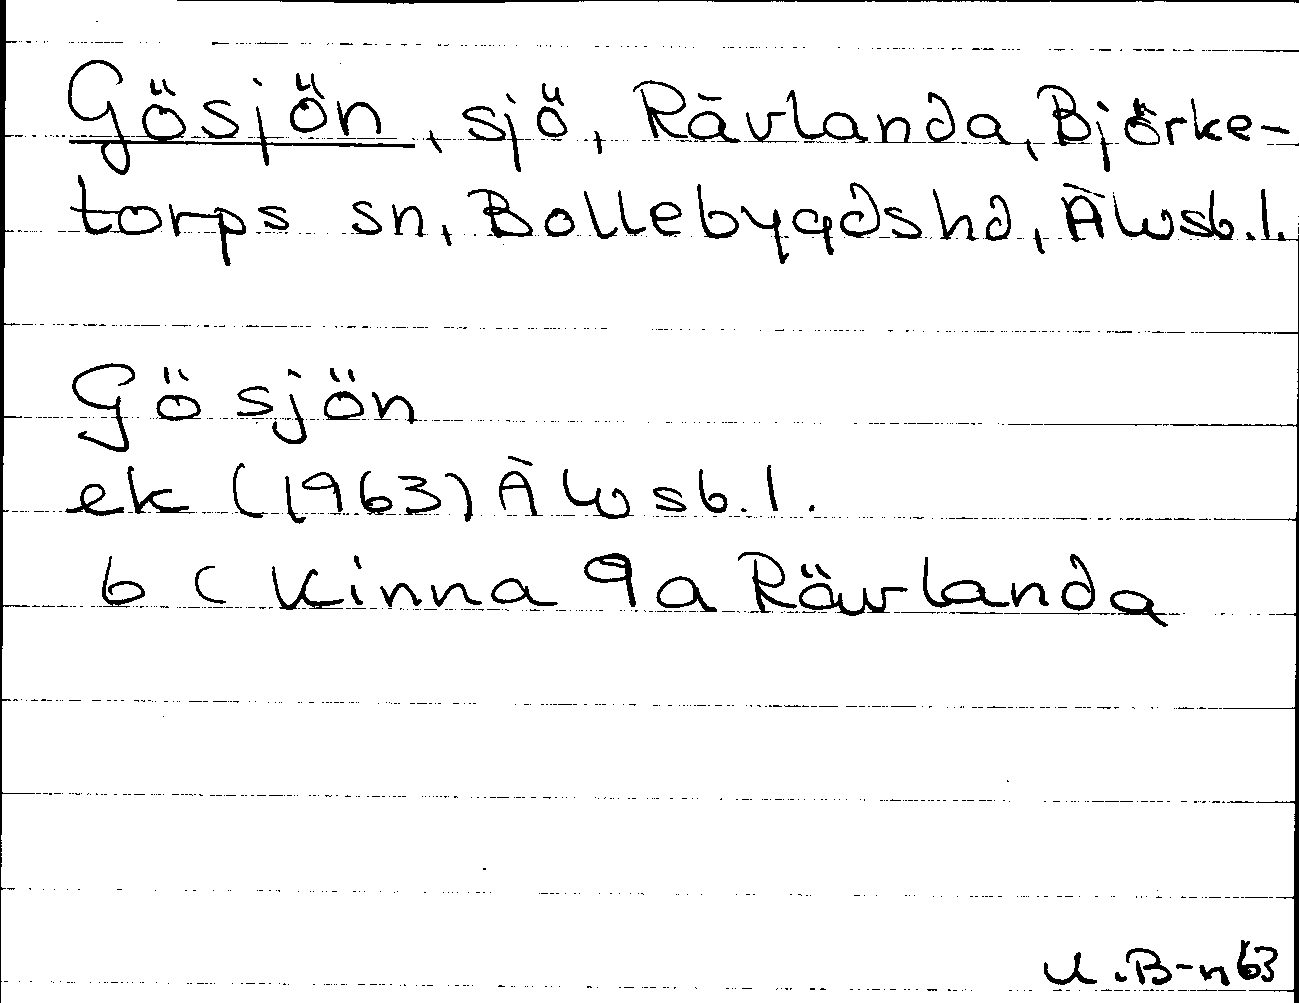 Gösjön, sjö, Rävlanda, Björke-
torps sn, Bollebygdshd, Älvsb.l.
Gösjön
ek (1963) Älvsb.l.
6 C Kinna 9a Rävlanda
U.B-n 63